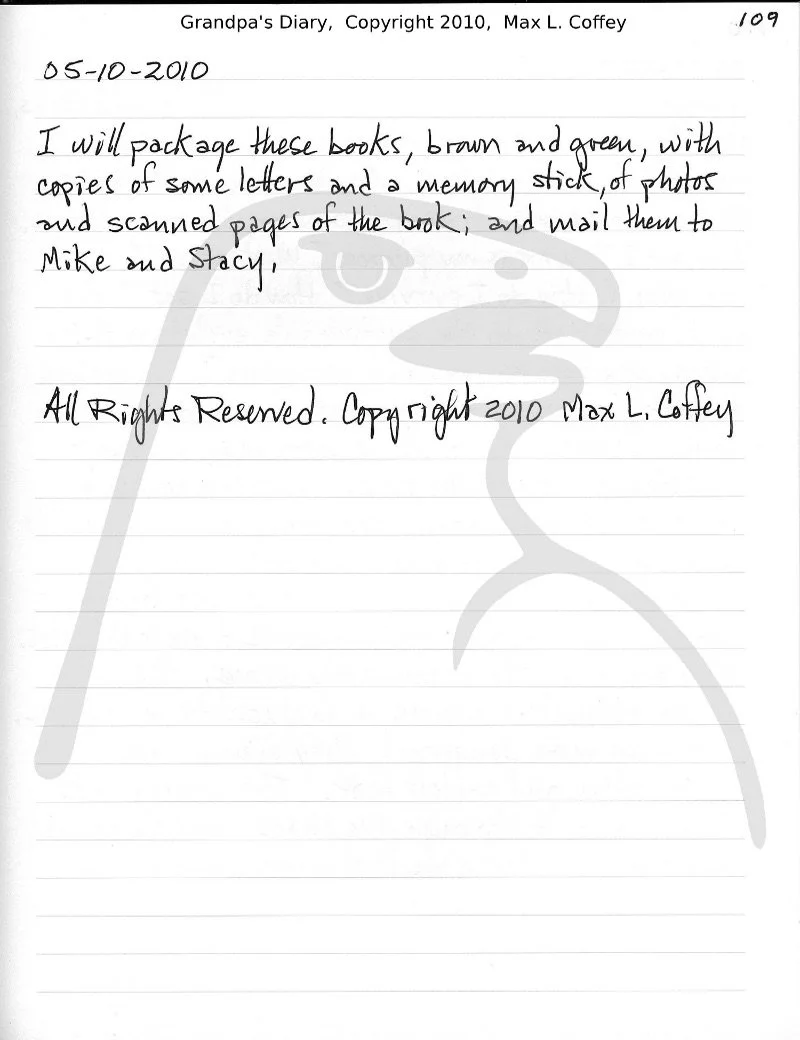 Grandpa's Diary, Copyright 2010, Max L. Coffey
109
05-10-2010
I will package these books, brown and green, with
copies of some letters and a memory stick, of photos
and scanned pages of the book; and mail them to
Mike and Stacy.
All Rights Reserved. Copyright 2010 Max L. Coffey